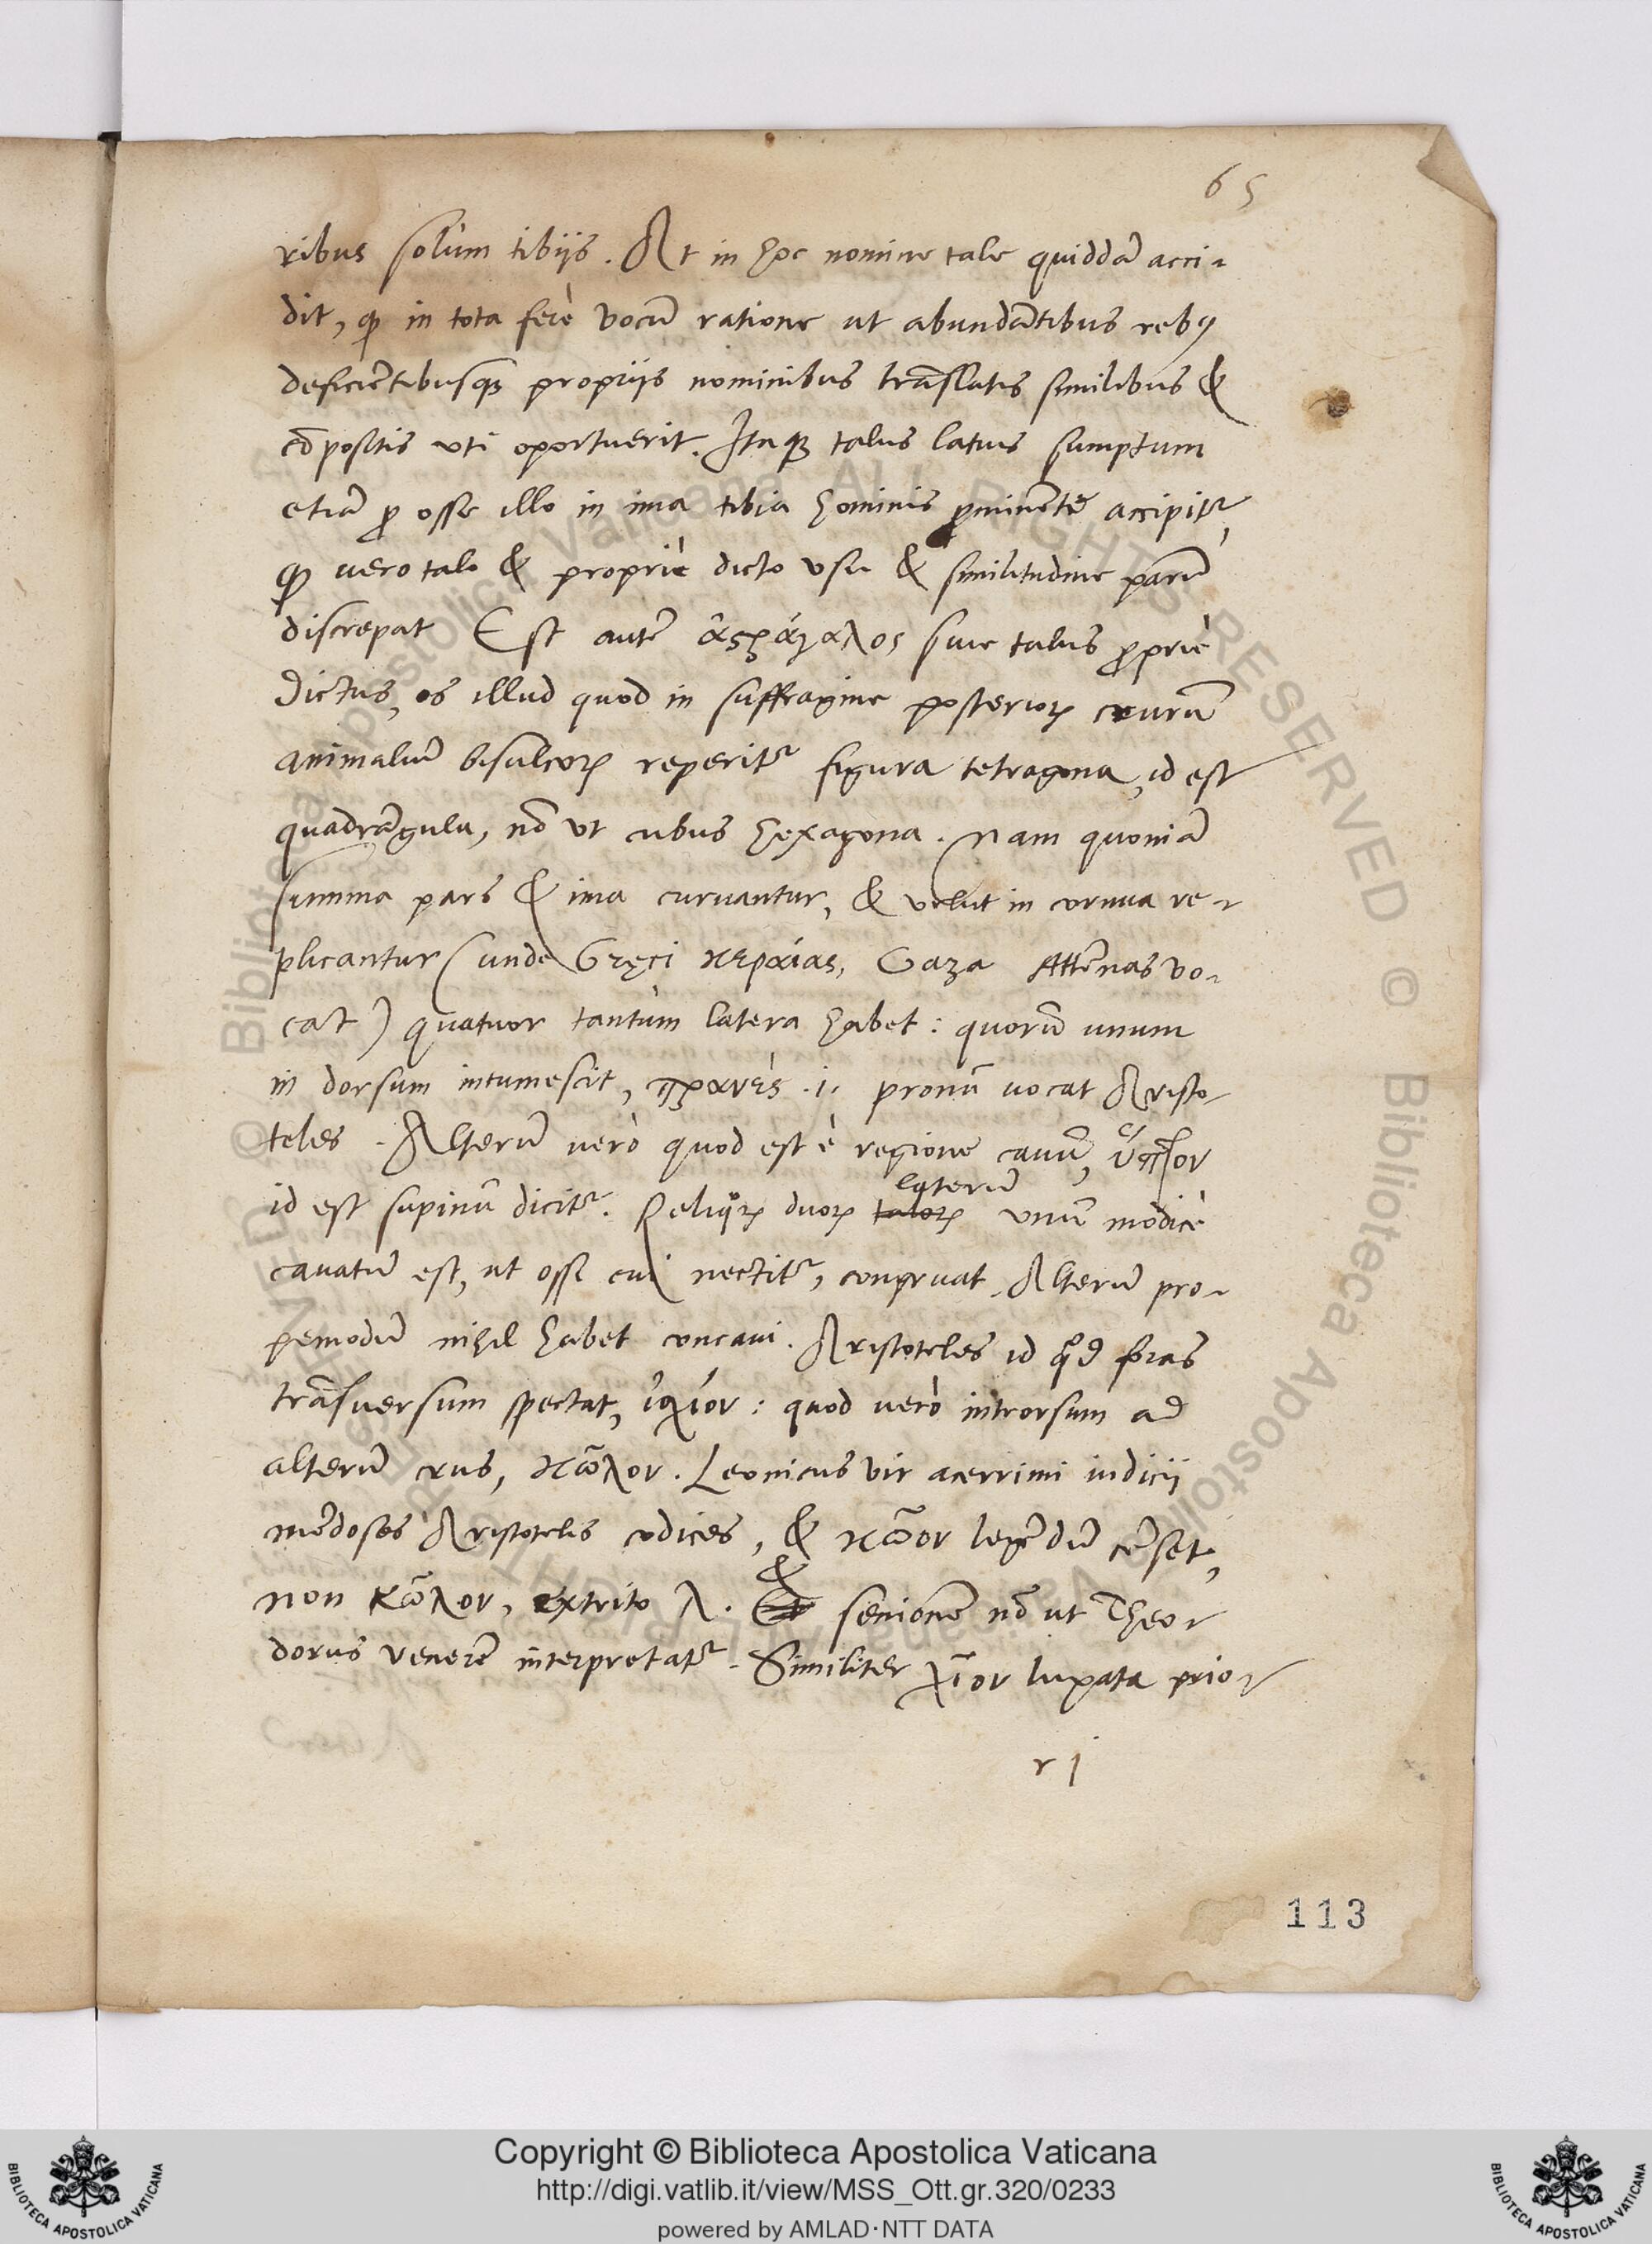 65
ribus solùm tibijs. At in hoc nomine tale quiddā acci-
dit, qđ in tota ferè vocū ratione ut abundātibus rebꝰ
deficiētibusqꝫ proprijs nominibus trāslatis similibus &
cōpositis uti oportuerit. Itaqꝫ talus latius sumptum
etiā ꝓ osse illo in ima tibia hominis ꝓminēte accipitr,
qđ vero talo & propriè dicto usu & similitudine parū
discrepat Est autē ἀστράγαλος siue talus ꝓpriè
dictus, os illud quod in suffragine posterioꝝ crurū
animaliū bisulcoꝝ reperitr figura tetragona, id est
quadrāgula, nō ut cubus hexagona. Nam quoniā
summa pars & ima curuantur, & velut in cornua re-
plicantur (unde Gręci κεραίας, Gaza Attēnas vo-
cat) quatuor tantùm latera habet: quorū unum
in dorsum intumescit, πρανὲς .i. pronū uocat Aristo-
teles. Alterū verò quod est è regione cauū, ὕπτιον
id est supinū dicitr. Reliqoꝝ duoꝝ taloꝝ laterū unū modicè
cauatū est, ut ossi cui nectitr, congruat. Alterū pro-
pemodū nihil habet concaui. Aristoteles id qđ foras
trāsuersum spectat, ἰσχίον: quod verò introrsum ad
alterū crus, κῶλον. Leonicus vir acerrimi iudicii
mēdosos Aristotelis codices, & κῶον legēdū cēset,
non κῶλον, extrito λ. & & senionē nō ut Theo-
dorus venerē interpretatr. Similiter χῖον lupata prio-
r j
113
© Biblioteca Apostolica Vaticana ALL RIGHTS RESERVED © Biblioteca Apostolica Vaticana ALL RIGHTS RESERVED
Copyright © Biblioteca Apostolica Vaticana
http://digi.vatlib.it/view/MSS_Ott.gr.320/0233
powered by AMLAD·NTT DATA
BIBLIOTECA APOSTOLICA VATICANA
BIBLIOTECA APOSTOLICA VATICANA